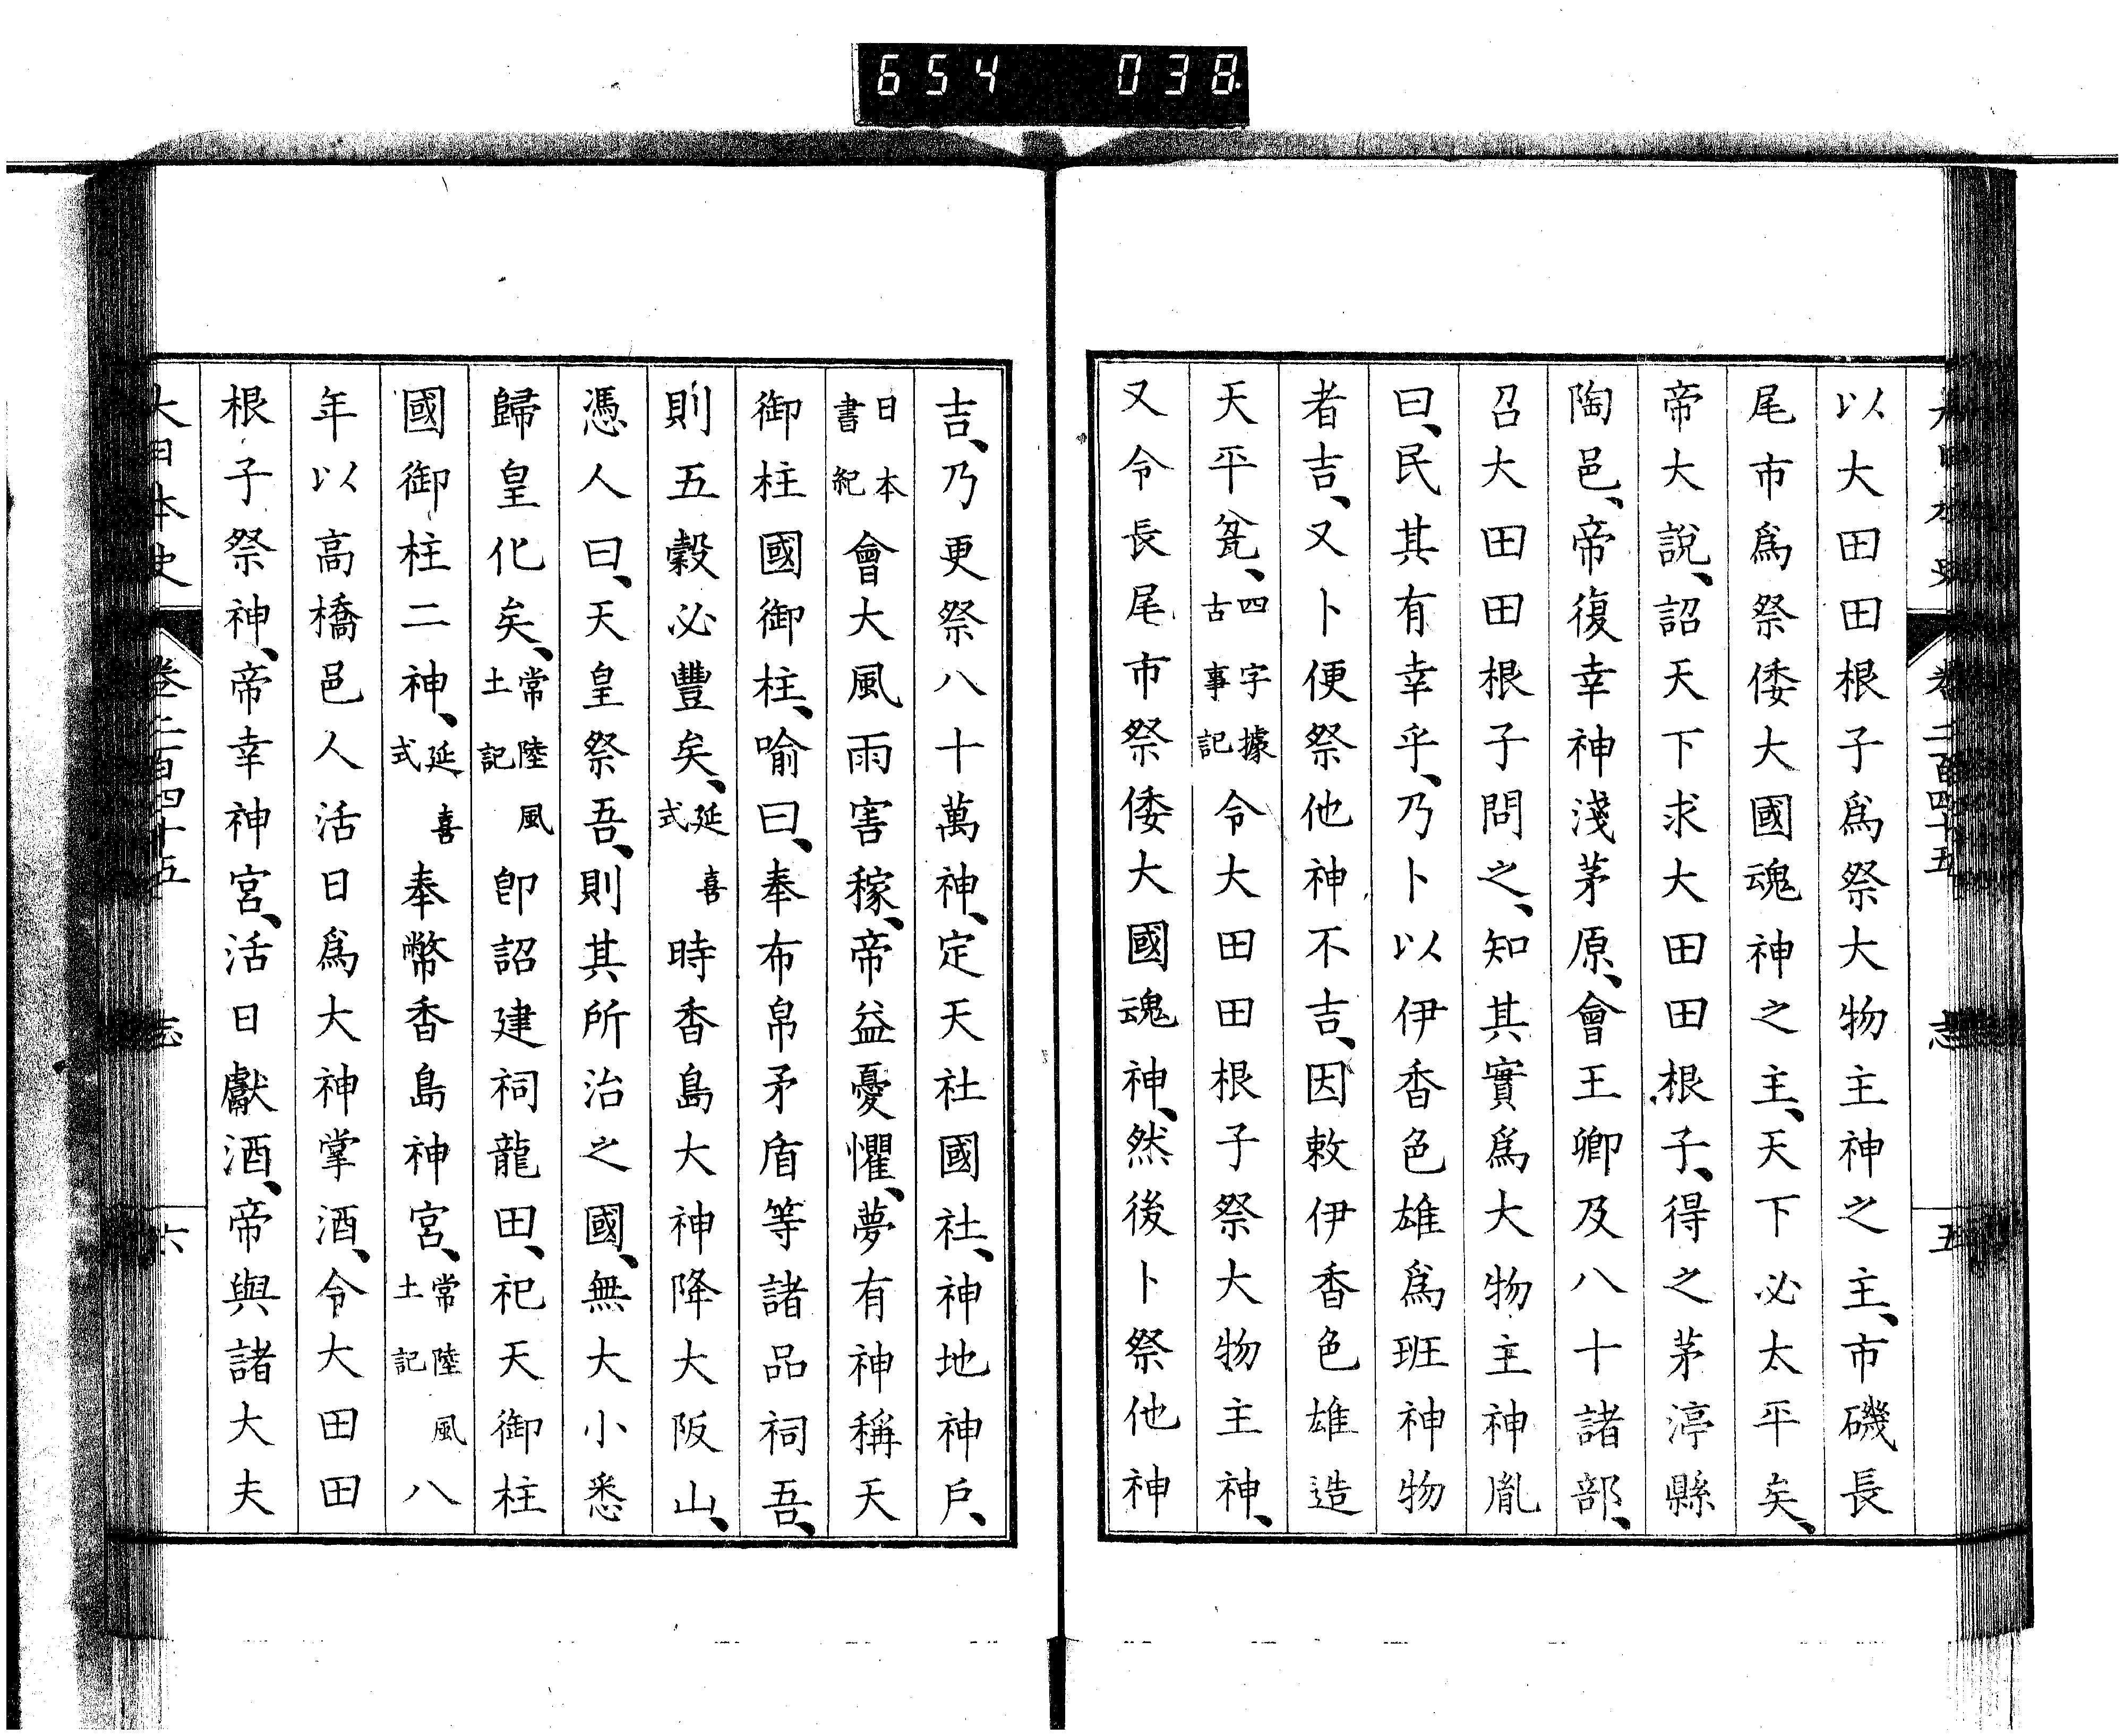 654 038
大日本史 卷二百四十五 志 五
以大田田根子爲祭大物主神之主、市磯長
尾市爲祭倭大國魂神之主、天下必太平矣、
帝大說、詔天下求大田田根子、得之茅渟縣
陶邑、帝復幸神淺茅原、會王卿及八十諸部、
召大田田根子問之、知其實爲大物主神胤
曰、民其有幸乎、乃卜以伊香色雄爲班神物
者吉、又卜便祭他神不吉、因敕伊香色雄造
天平瓮、四字據古事記令大田田根子祭大物主神、
又令長尾市祭倭大國魂神、然後卜祭他神
吉、乃更祭八十萬神、定天社國社、神地神戶、
日本書紀會大風雨害稼、帝益憂懼、夢有神稱天
御柱國御柱、喻曰、奉布帛矛盾等諸品祠吾、
則五穀必豐矣、延喜式時香島大神降大阪山、
憑人曰、天皇祭吾、則其所治之國、無大小悉
歸皇化矣、常陸風土記卽詔建祠龍田、祀天御柱
國御柱二神、延喜式奉幣香島神宮、常陸風土記八
年以高橋邑人活日爲大神掌酒、令大田田
根子祭神、帝幸神宮、活日獻酒、帝與諸大夫
大日本史 卷二百四十五 志 六